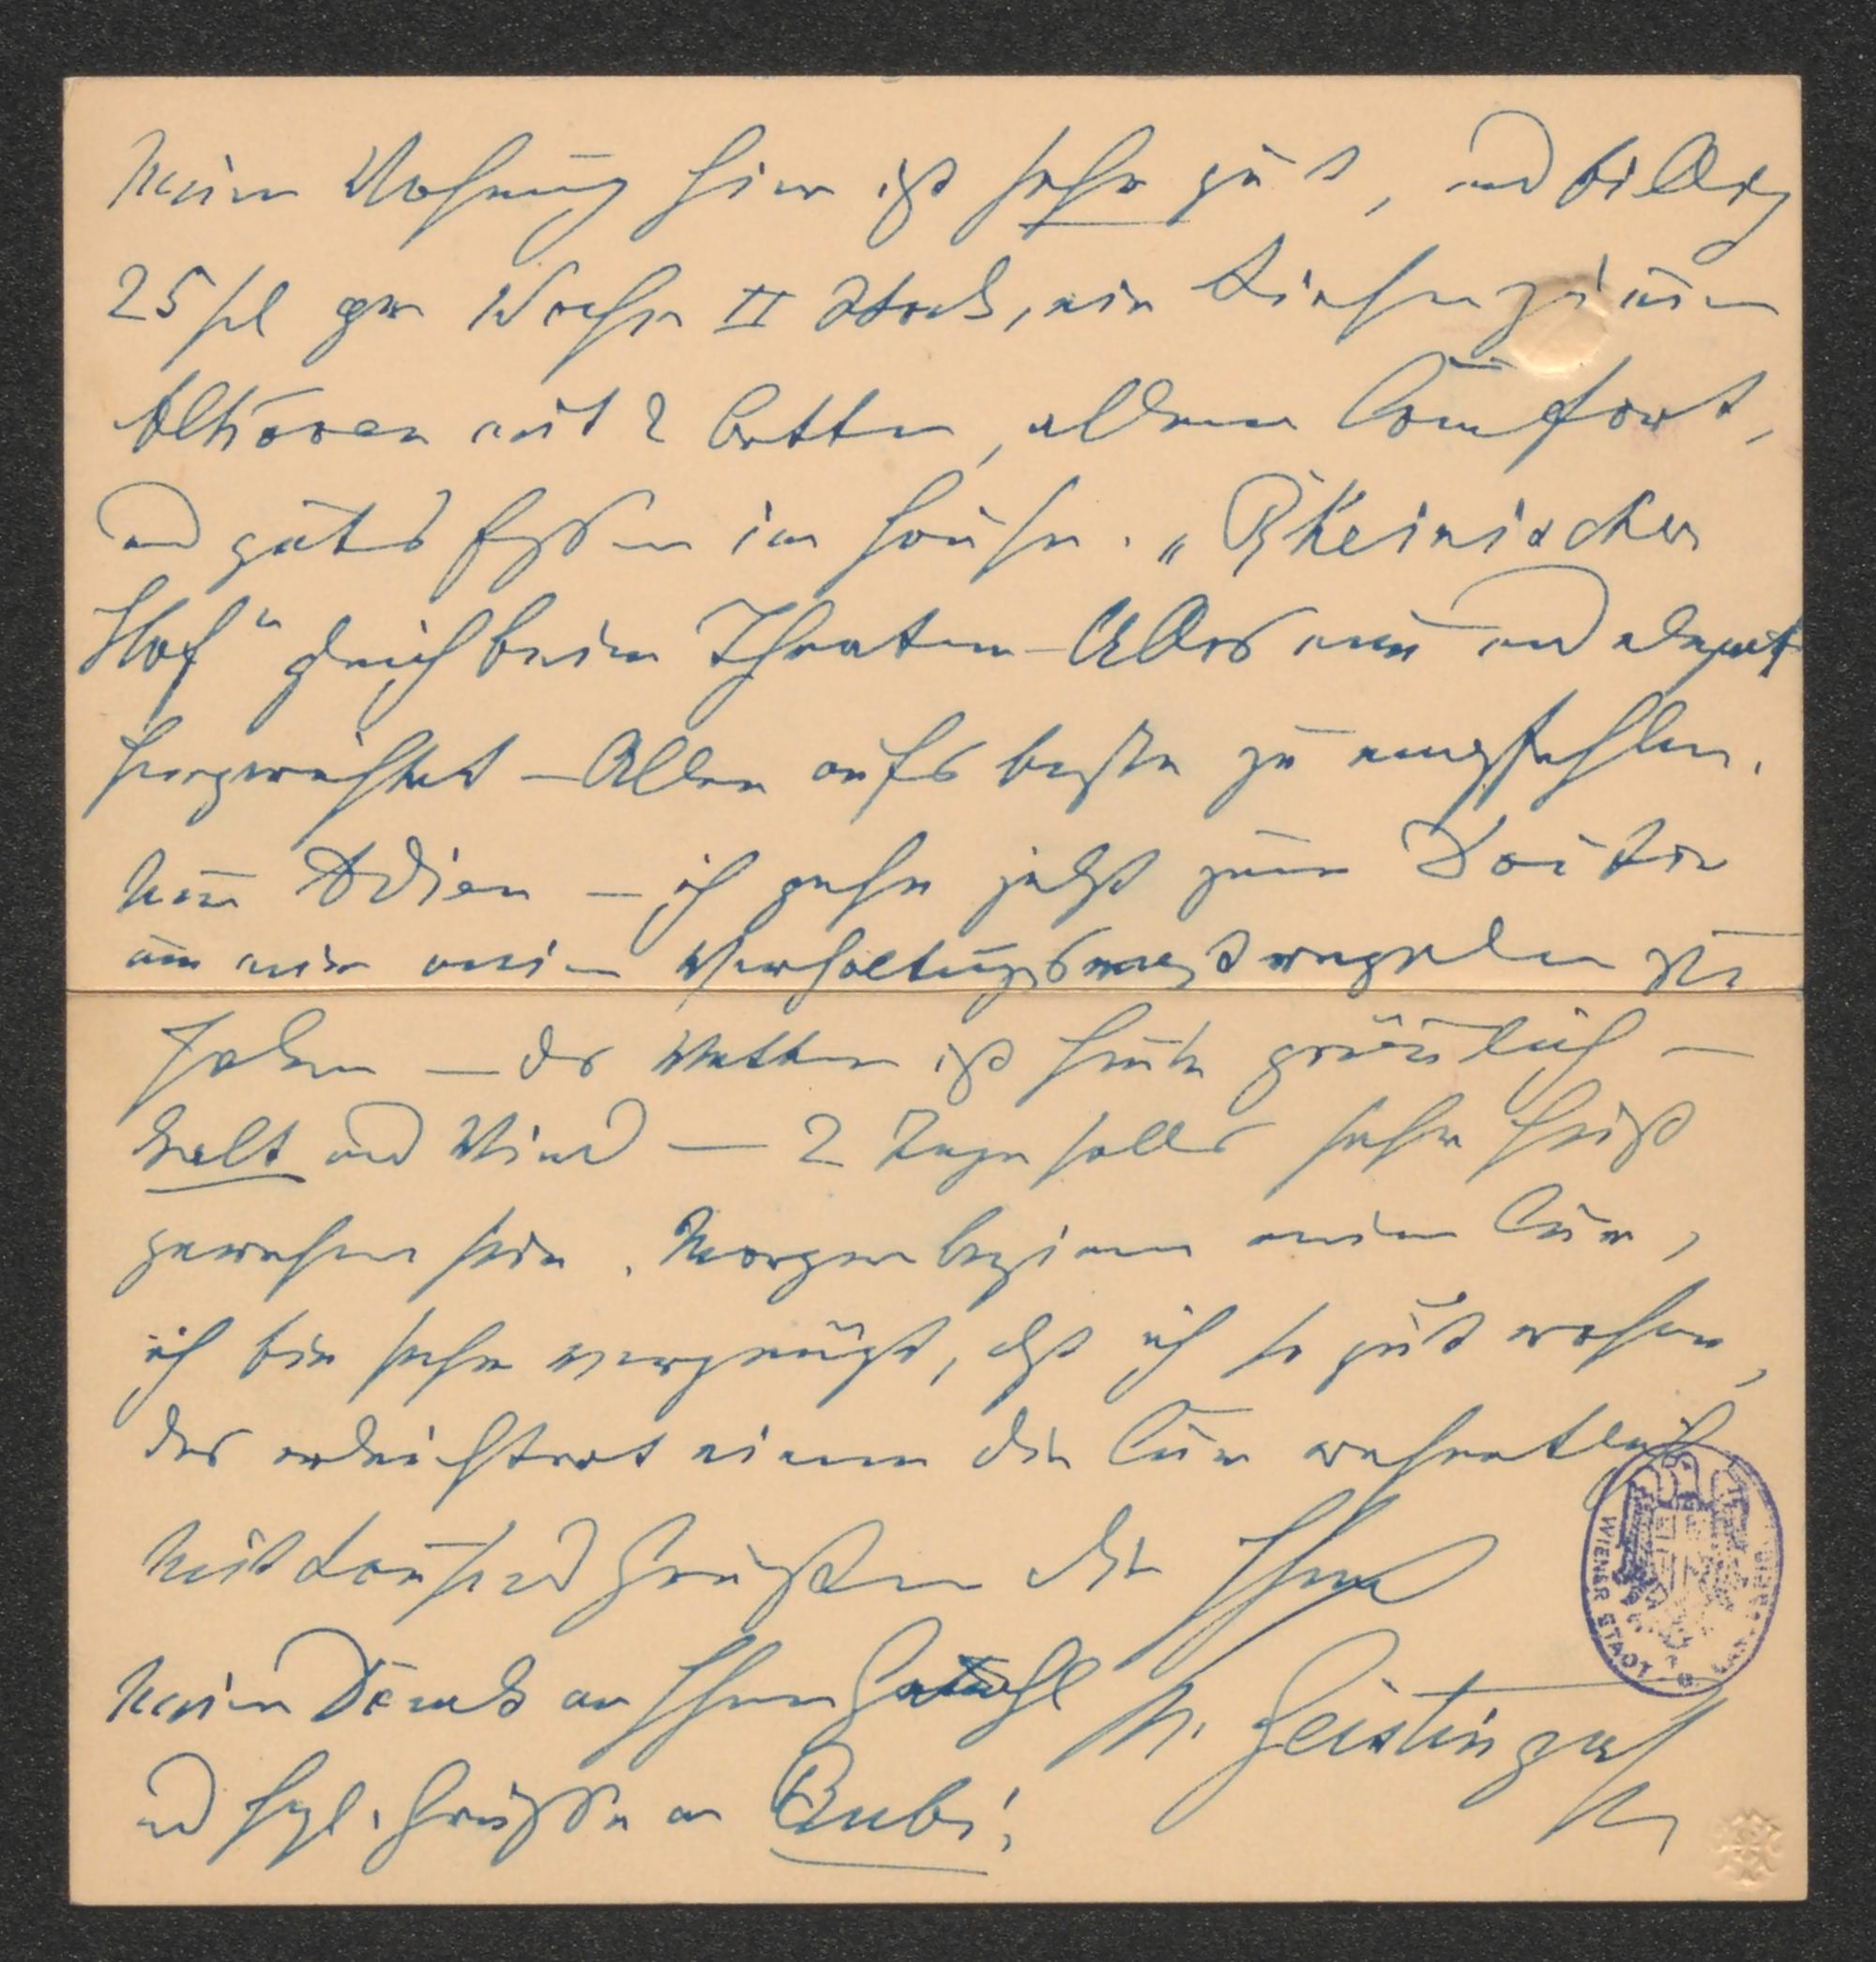 Meine Wohnung hier ist sehr gut, und billig
25 fl per Woche II Stock, ein Zimmer
Alkoven mit 2 Betten, allem Comfort,
und gutes Essen im Hause. „Rheinischer
Hof“ gleich beim Theater – Alles neu und elegant
hergerichtet – Allen aufs beste zu empfehlen.
Nun Adieu – ich gehe jetzt zum Doctor
um mir meine Verhaltungsmaßregeln zu
holen – das Wetter ist heute gräulich –
kalt und Wind – 2 Tage solls sehr heiß
gewesen sein. Morgen beginne meine Cur,
ich bin sehr vergnügt, daß ich so gut wohne,
das erleichtert einem die Cur wesentlich
Mit tausend Grüßen die Ihre
M. Geistinger
Meinen Dank an Ihren Gemahl
und hzl. Grüße an Bubi!
WIENER STADT